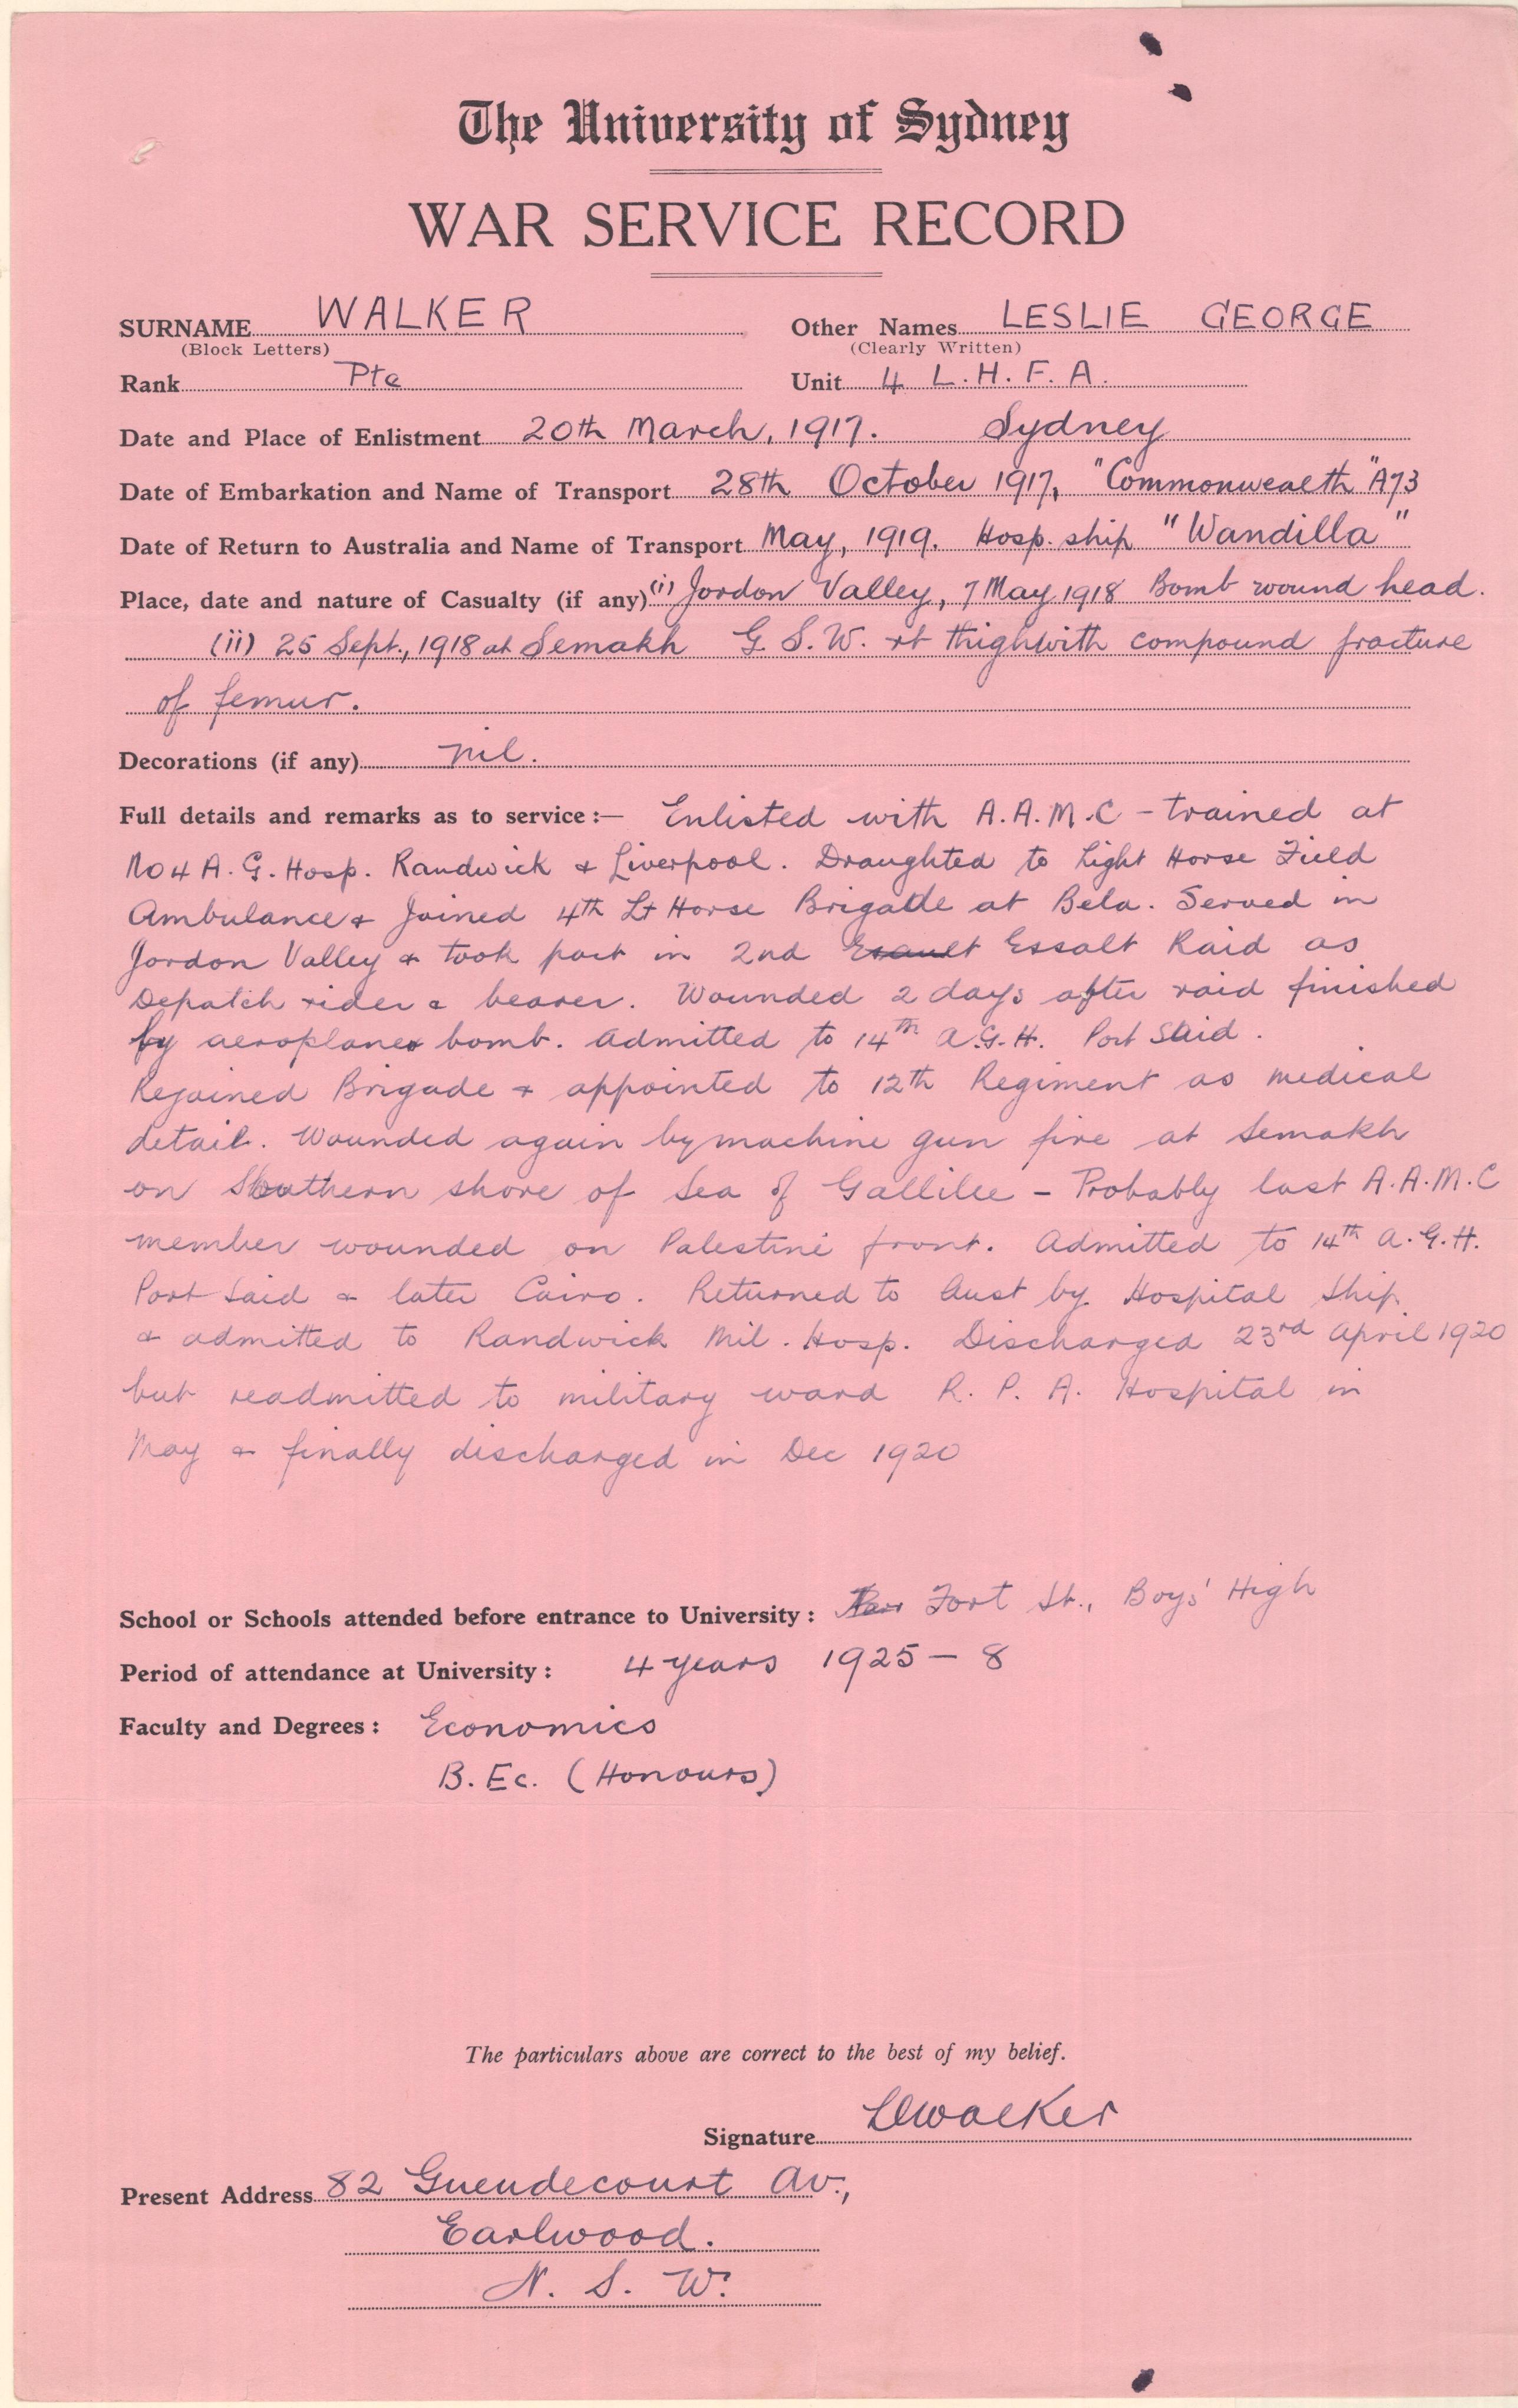 The University of Sydney
WAR SERVICE RECORD
SURNAME WALKER Other Names LESLIE GEORGE
(Block Letters) (Clearly Written)
Rank Pte Unit 4 L.H.F.A.
Date and Place of Enlistment 20th March, 1917. Sydney
Date of Embarkation and Name of Transport 28th October 1917, "Commonwealth" A73
Date of Return to Australia and Name of Transport May, 1919. Hosp. ship "Wandilla"
Place, date and nature of Casualty (if any) (i) Jordon Valley, 7 May 1918 Bomb wound head.
(ii) 25 Sept., 1918 at Semakh G.S.W. rt thigh with compound fracture
of femur.
Decorations (if any) nil.
Full details and remarks as to service:— Enlisted with A.A.M.C - trained at
No 4 A.G. Hosp. Randwick & Liverpool. Draughted to Light Horse Field
Ambulance & Joined 4th Lt Horse Brigade at Bela. Served in
Jordon Valley & took part in 2nd Essalt Raid as
Depatch rider & bearer. Wounded 2 days after raid finished
by aeroplane bomb. Admitted to 14th A.G.H. Port Said.
Rejoined Brigade & appointed to 12th Regiment as medical
detail. Wounded again by machine gun fire at Semakh
on Southern shore of Sea of Gallilee - Probably last A.A.M.C
member wounded on Palestine front. Admitted to 14th A.G.H.
Port Said & later Cairo. Returned to Aust by Hospital Ship
& admitted to Randwick Mil. Hosp. Discharged 23rd April 1920
but readmitted to military ward R.P.A. Hospital in
May & finally discharged in Dec 1920
School or Schools attended before entrance to University: Fort St., Boys' High
Period of attendance at University: 4 years 1925-8
Faculty and Degrees: Economics
B.Ec. (Honours)
The particulars above are correct to the best of my belief.
Signature LGWalker
Present Address 82 Gueudecourt Av.,
Earlwood.
N.S.W.